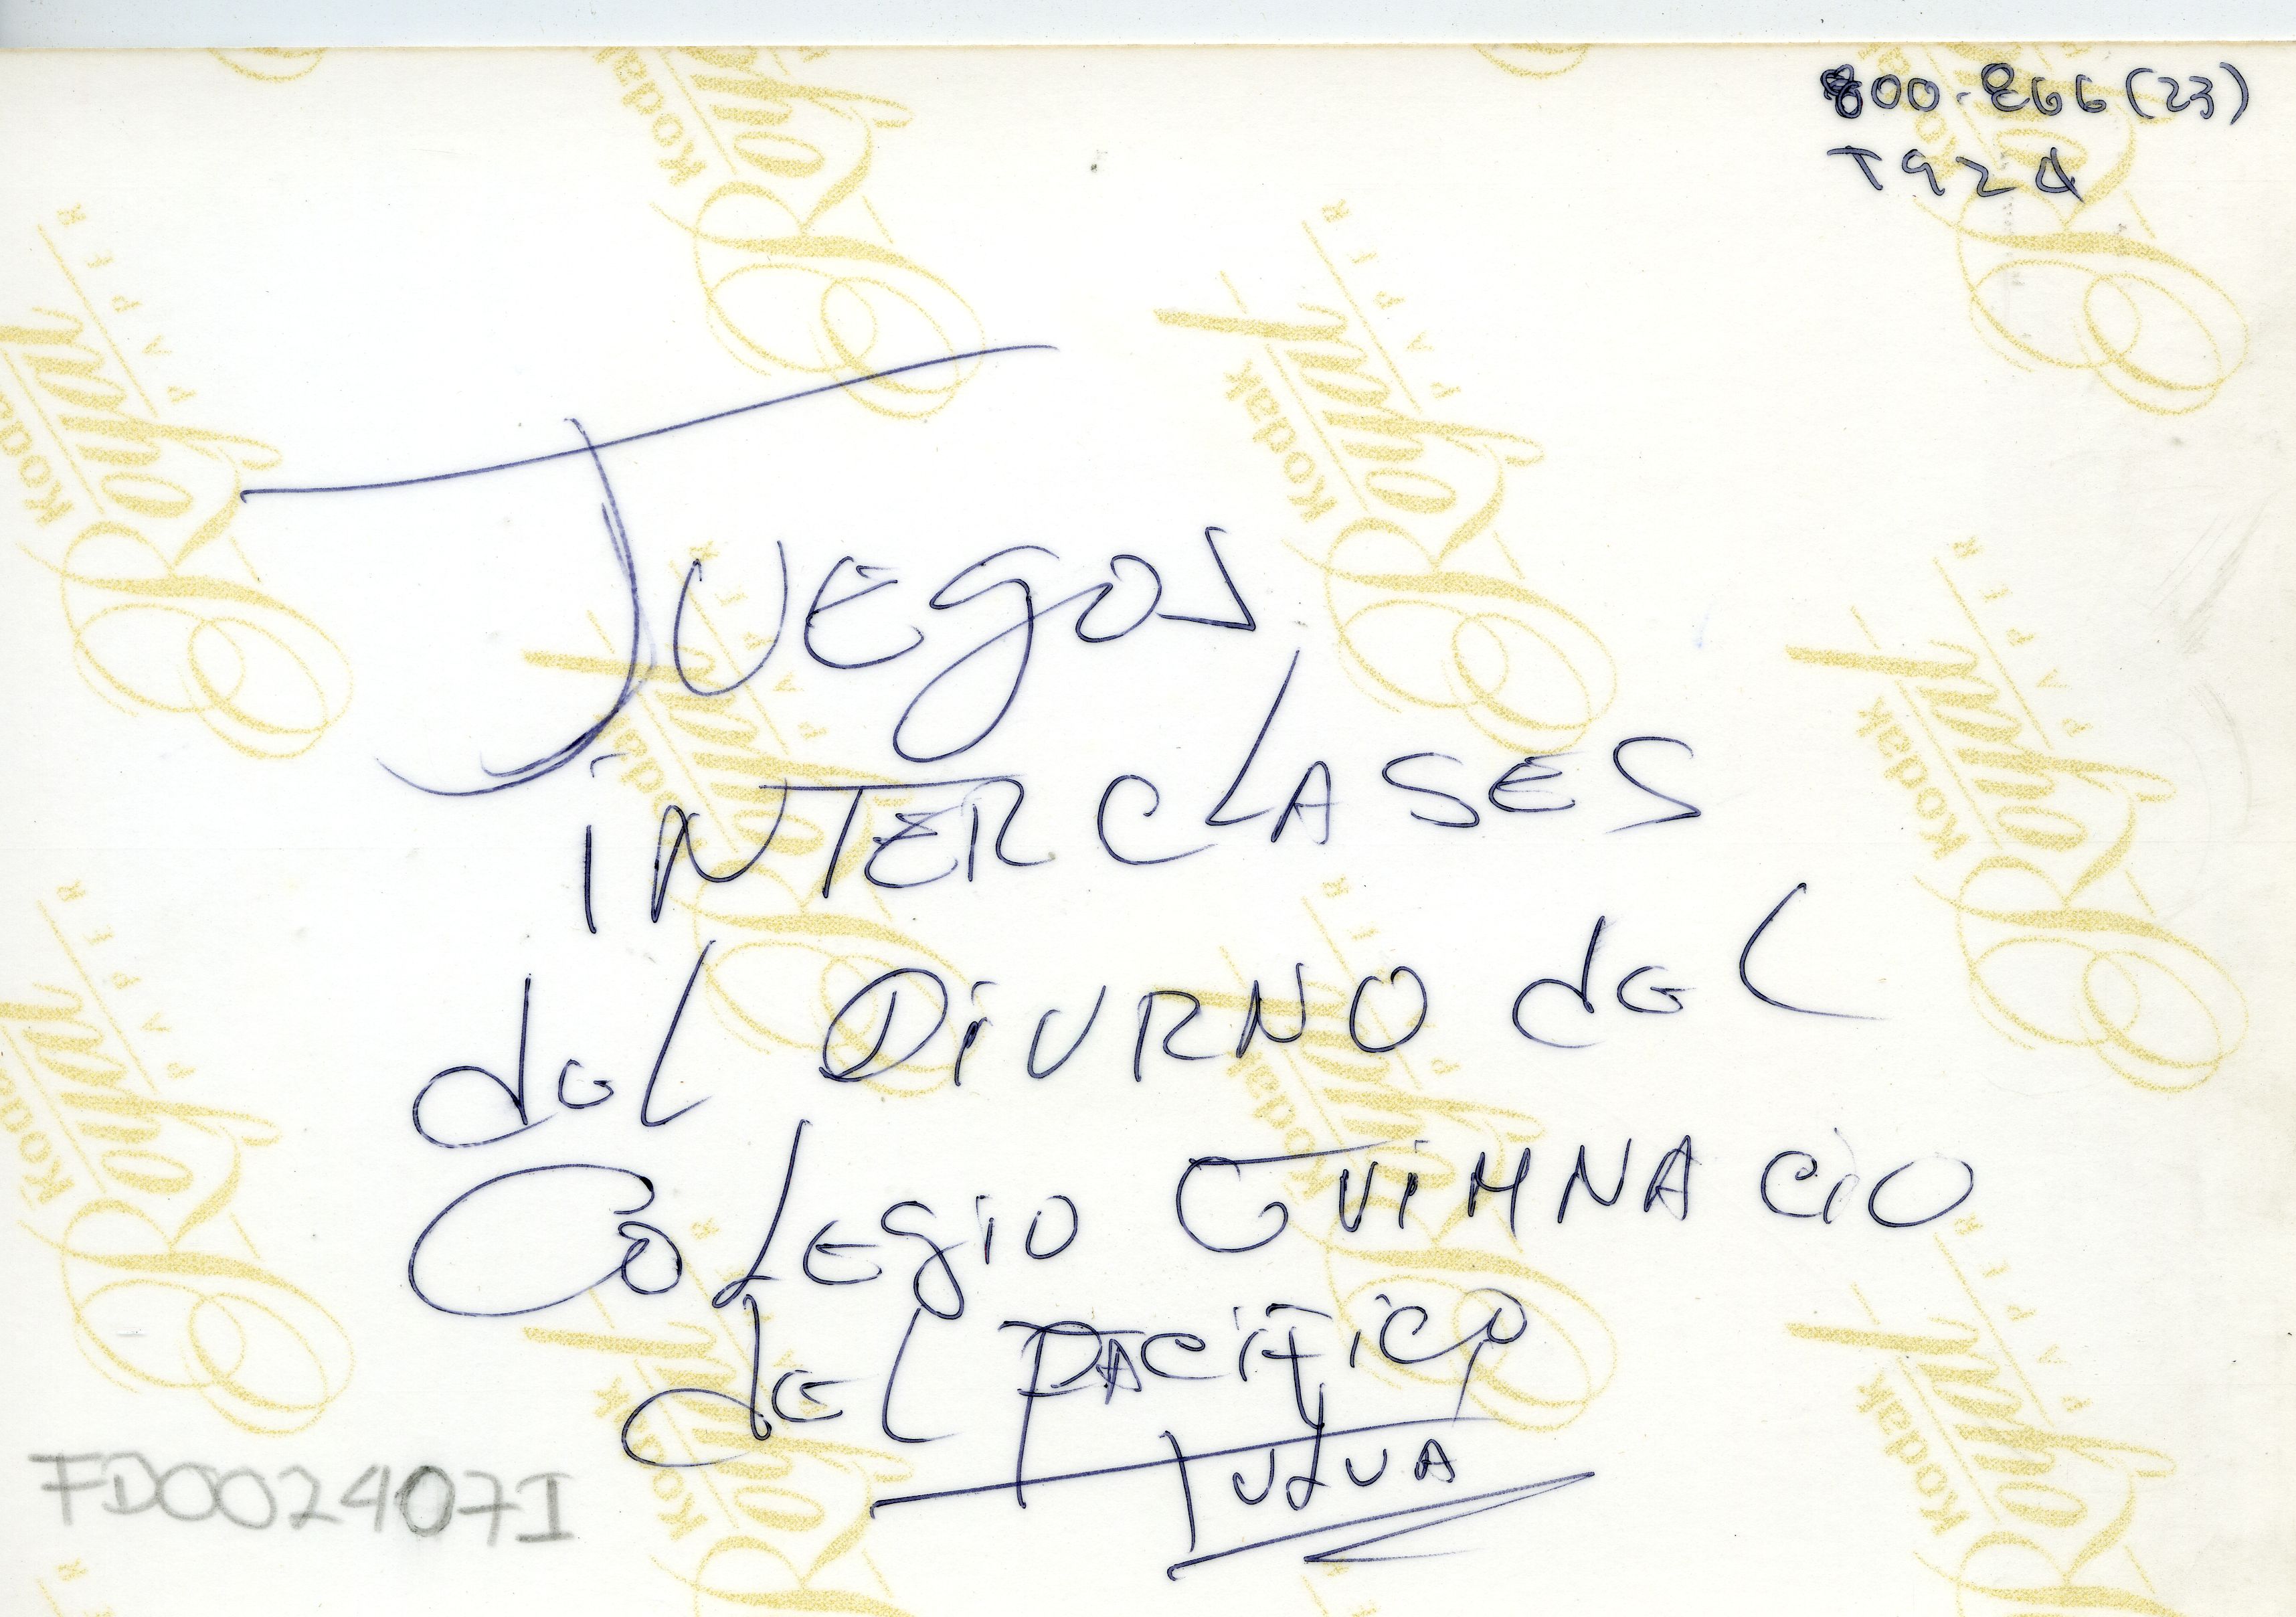 800-866(23)
T924
JUEGOS
INTERCLASES
del DiURNO del
COLEGIO GUIMNACIO
del PACIFICO
TULUA
FD0024071
Kodak
Royal
PAPER